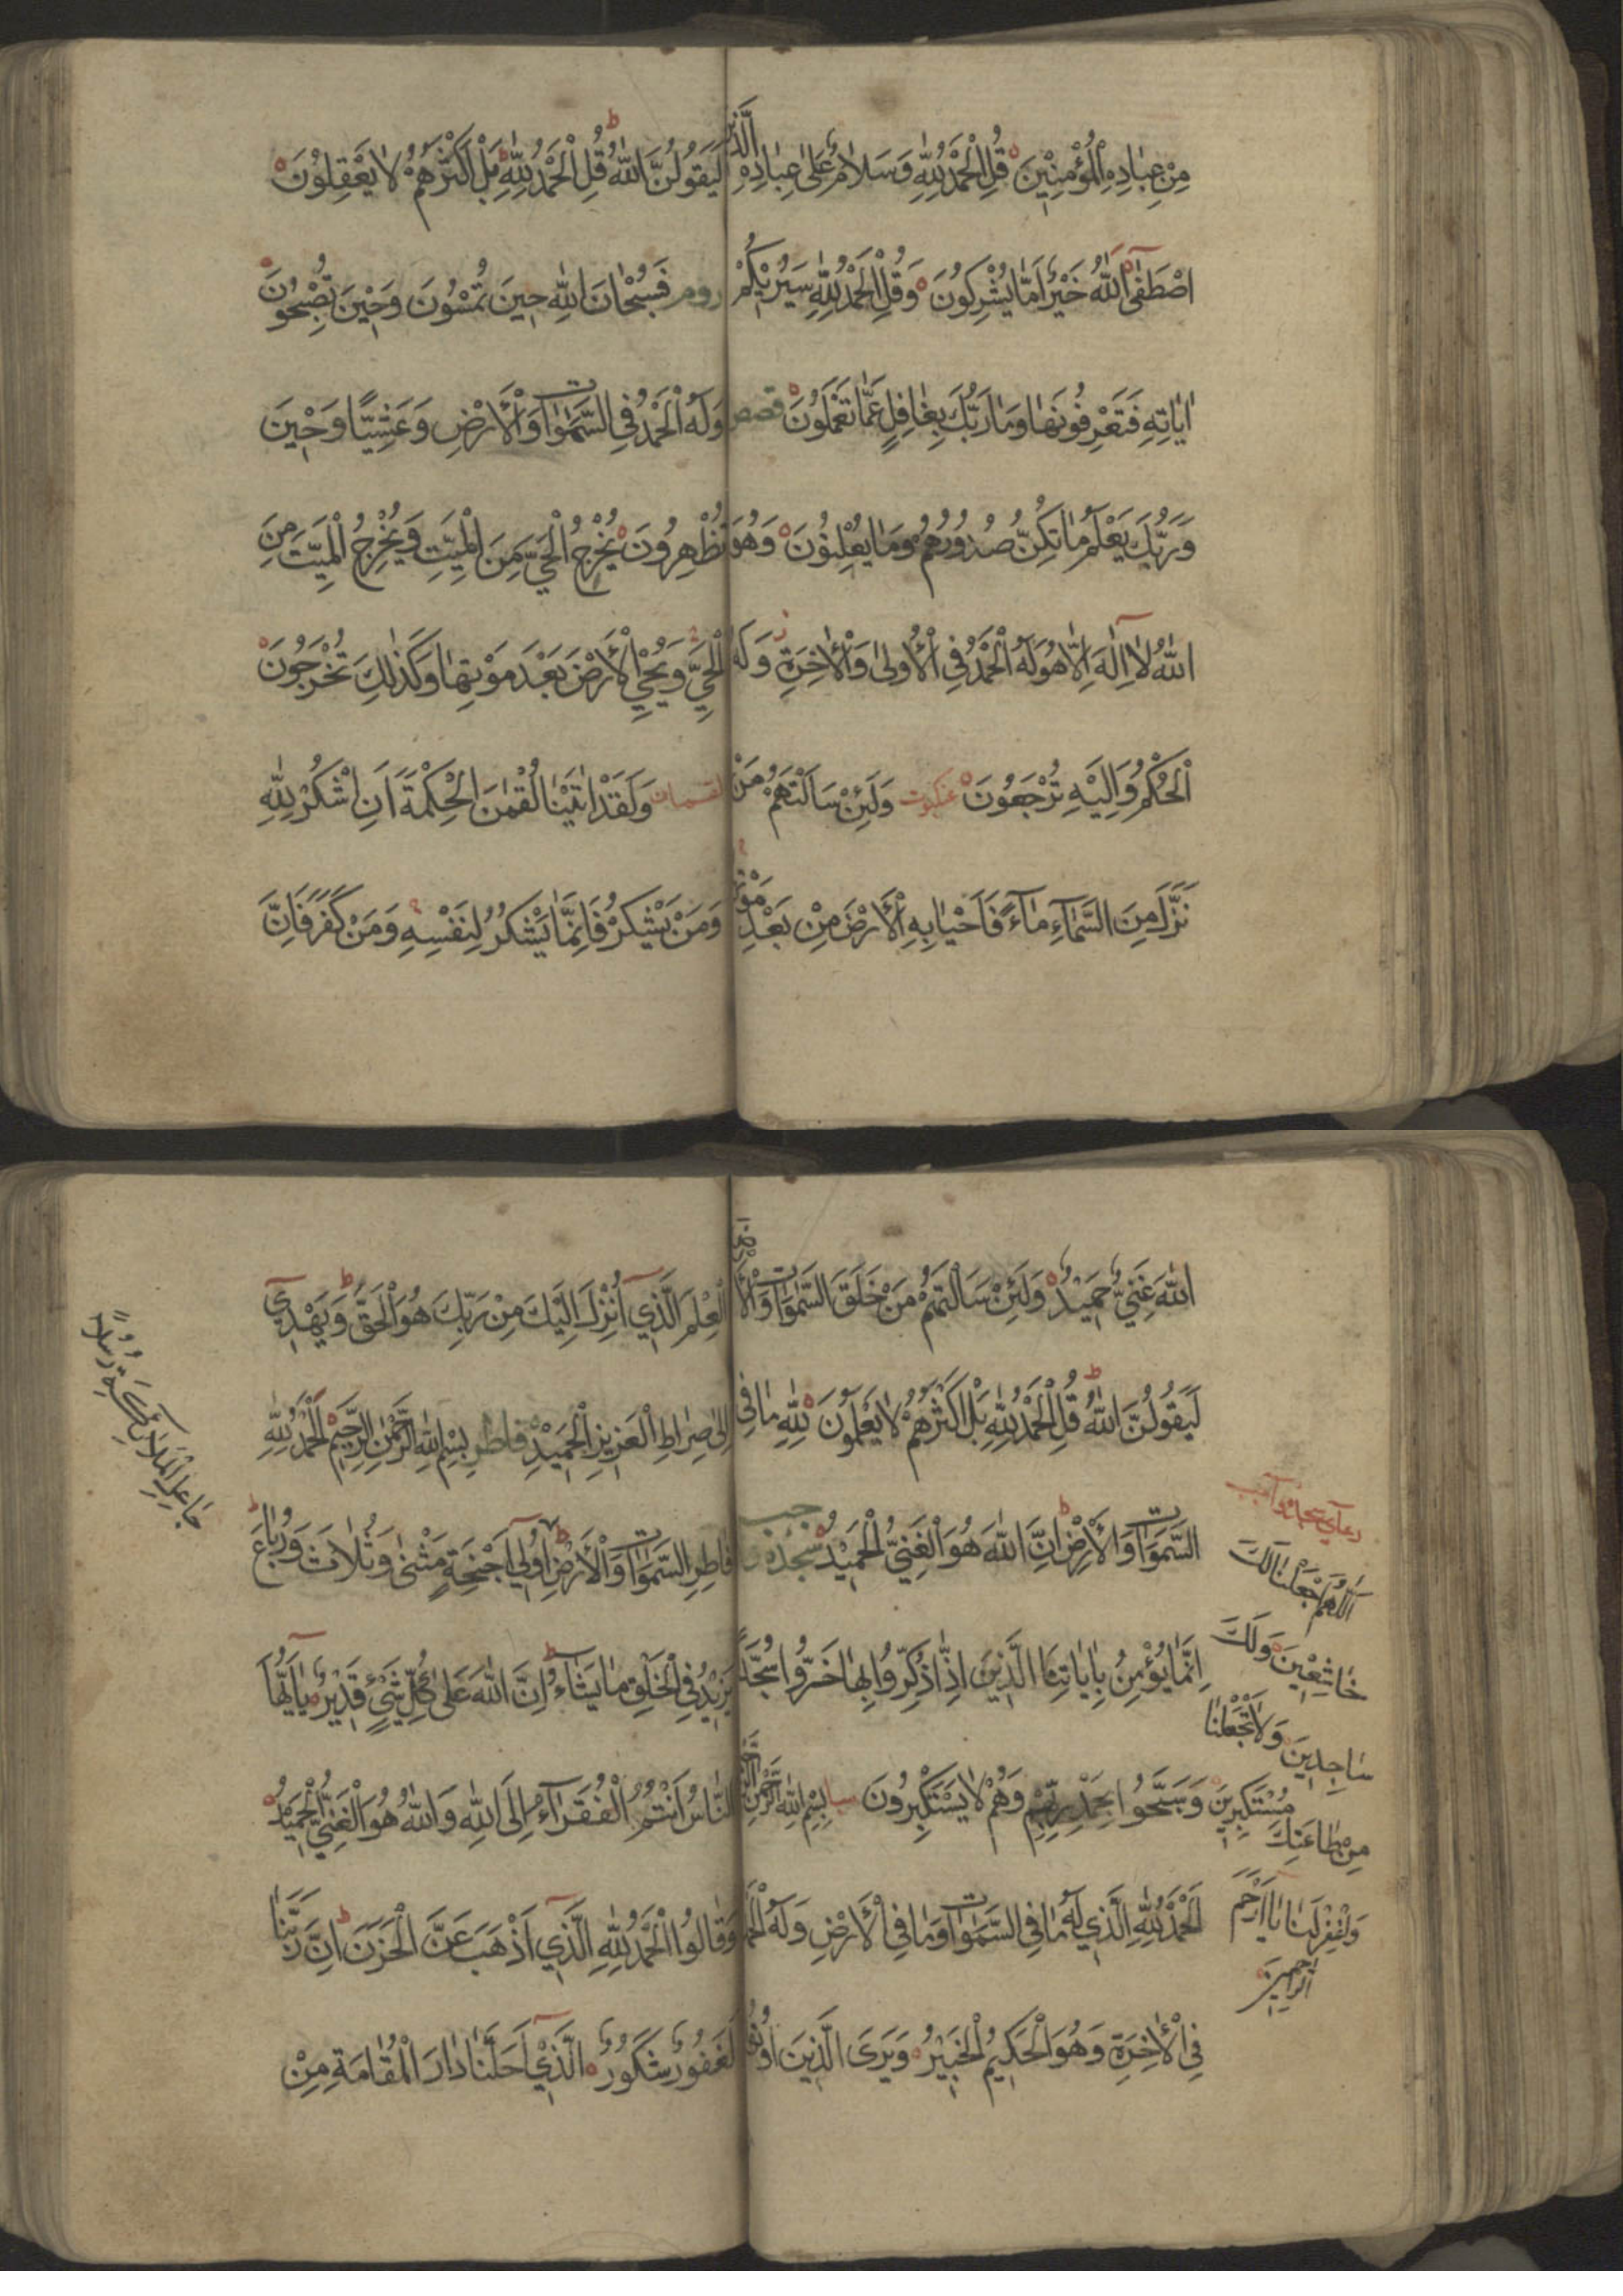 مِنْ عِبَادِهِ الْمُؤْمِنِينَ قُلِ الْحَمْدُ لِلّٰهِ وَسَلَامٌ عَلٰى عِبَادِهِ الَّذِينَ
اصْطَفٰى اللّٰهُ خَيْرٌ اَمَّا يُشْرِكُونَ وَقُلِ الْحَمْدُ لِلّٰهِ سَيُرِيكُمْ
اٰيَاتِهِ فَتَعْرِفُونَهَا وَمَا رَبُّكَ بِغَافِلٍ عَمَّا تَعْمَلُونَ قصص
وَرَبُّكَ يَعْلَمُ مَا تُكِنُّ صُدُورُهُمْ وَمَا يُعْلِنُونَ وَهُوَ
اللّٰهُ لَا اِلٰهَ اِلَّا هُوَ لَهُ الْحَمْدُ فِي الْاُولٰى وَالْاٰخِرَةِ وَلَهُ
الْحُكْمُ وَاِلَيْهِ تُرْجَعُونَ عنكبوت وَلَئِنْ سَاَلْتَهُمْ مَنْ
نَزَّلَ مِنَ السَّمَاءِ مَاءً فَاَحْيَا بِهِ الْاَرْضَ مِنْ بَعْدِ مَوْتِهَا
لَيَقُولُنَّ اللّٰهُ قُلِ الْحَمْدُ لِلّٰهِ بَلْ اَكْثَرُهُمْ لَا يَعْقِلُونَ
روم فَسُبْحَانَ اللّٰهِ حِينَ تُمْسُونَ وَحِينَ تُصْبِحُونَ
وَلَهُ الْحَمْدُ فِي السَّمٰوَاتِ وَالْاَرْضِ وَعَشِيًّا وَحِينَ
تُظْهِرُونَ يُخْرِجُ الْحَيَّ مِنَ الْمَيِّتِ وَيُخْرِجُ الْمَيِّتَ مِنَ
الْحَيِّ وَيُحْيِ الْاَرْضَ بَعْدَ مَوْتِهَا وَكَذٰلِكَ تُخْرَجُونَ
لقمان وَلَقَدْ اٰتَيْنَا لُقْمٰنَ الْحِكْمَةَ اَنِ اشْكُرْ لِلّٰهِ
وَمَنْ يَشْكُرْ فَاِنَّمَا يَشْكُرُ لِنَفْسِهِ وَمَنْ كَفَرَ فَاِنَّ
اللّٰهَ غَنِيٌّ حَمِيدٌ وَلَئِنْ سَاَلْتَهُمْ مَنْ خَلَقَ السَّمٰوَاتِ وَالْاَرْضَ
لَيَقُولُنَّ اللّٰهُ قُلِ الْحَمْدُ لِلّٰهِ بَلْ اَكْثَرُهُمْ لَا يَعْلَمُونَ لِلّٰهِ مَا فِي
السَّمٰوَاتِ وَالْاَرْضِ اِنَّ اللّٰهَ هُوَ الْغَنِيُّ الْحَمِيدُ سجده
اِنَّمَا يُؤْمِنُ بِاٰيَاتِنَا الَّذِينَ اِذَا ذُكِّرُوا بِهَا خَرُّوا سُجَّدًا
وَسَبَّحُوا بِحَمْدِ رَبِّهِمْ وَهُمْ لَا يَسْتَكْبِرُونَ سبا بِسْمِ اللّٰهِ الرَّحْمٰنِ الرَّحِيمِ
اَلْحَمْدُ لِلّٰهِ الَّذِي لَهُ مَا فِي السَّمٰوَاتِ وَمَا فِي الْاَرْضِ وَلَهُ الْحَمْدُ
فِي الْاٰخِرَةِ وَهُوَ الْحَكِيمُ الْخَبِيرُ وَيَرَى الَّذِينَ اُوتُوا
اَللّٰهُمَّ اجْعَلْنَا لَكَ
خَاشِعِينَ وَلَكَ
سَاجِدِينَ وَلَا تَجْعَلْنَا
مُسْتَكْبِرِينَ
مِنْ طَاعَتِكَ
وَاغْفِرْ لَنَا يَا اَرْحَمَ
الرَّاحِمِينَ
الْعِلْمَ الَّذِي اُنْزِلَ اِلَيْكَ مِنْ رَبِّكَ هُوَ الْحَقَّ وَيَهْدِي
اِلٰى صِرَاطِ الْعَزِيزِ الْحَمِيدِ فاطر بِسْمِ اللّٰهِ الرَّحْمٰنِ الرَّحِيمِ اَلْحَمْدُ لِلّٰهِ
فَاطِرِ السَّمٰوَاتِ وَالْاَرْضِ اُولِي اَجْنِحَةٍ مَثْنٰى وَثُلَاثَ وَرُبَاعَ
يَزِيدُ فِي الْخَلْقِ مَا يَشَاءُ اِنَّ اللّٰهَ عَلٰى كُلِّ شَيْءٍ قَدِيرٌ يَا اَيُّهَا
النَّاسُ اَنْتُمُ الْفُقَرَاءُ اِلَى اللّٰهِ وَاللّٰهُ هُوَ الْغَنِيُّ الْحَمِيدُ
وَقَالُوا الْحَمْدُ لِلّٰهِ الَّذِي اَذْهَبَ عَنَّا الْحَزَنَ اِنَّ رَبَّنَا
لَغَفُورٌ شَكُورٌ الَّذِي اَحَلَّنَا دَارَ الْمُقَامَةِ مِنْ
جَاعِلِ الْمَلَائِكَةِ رُسُلًا